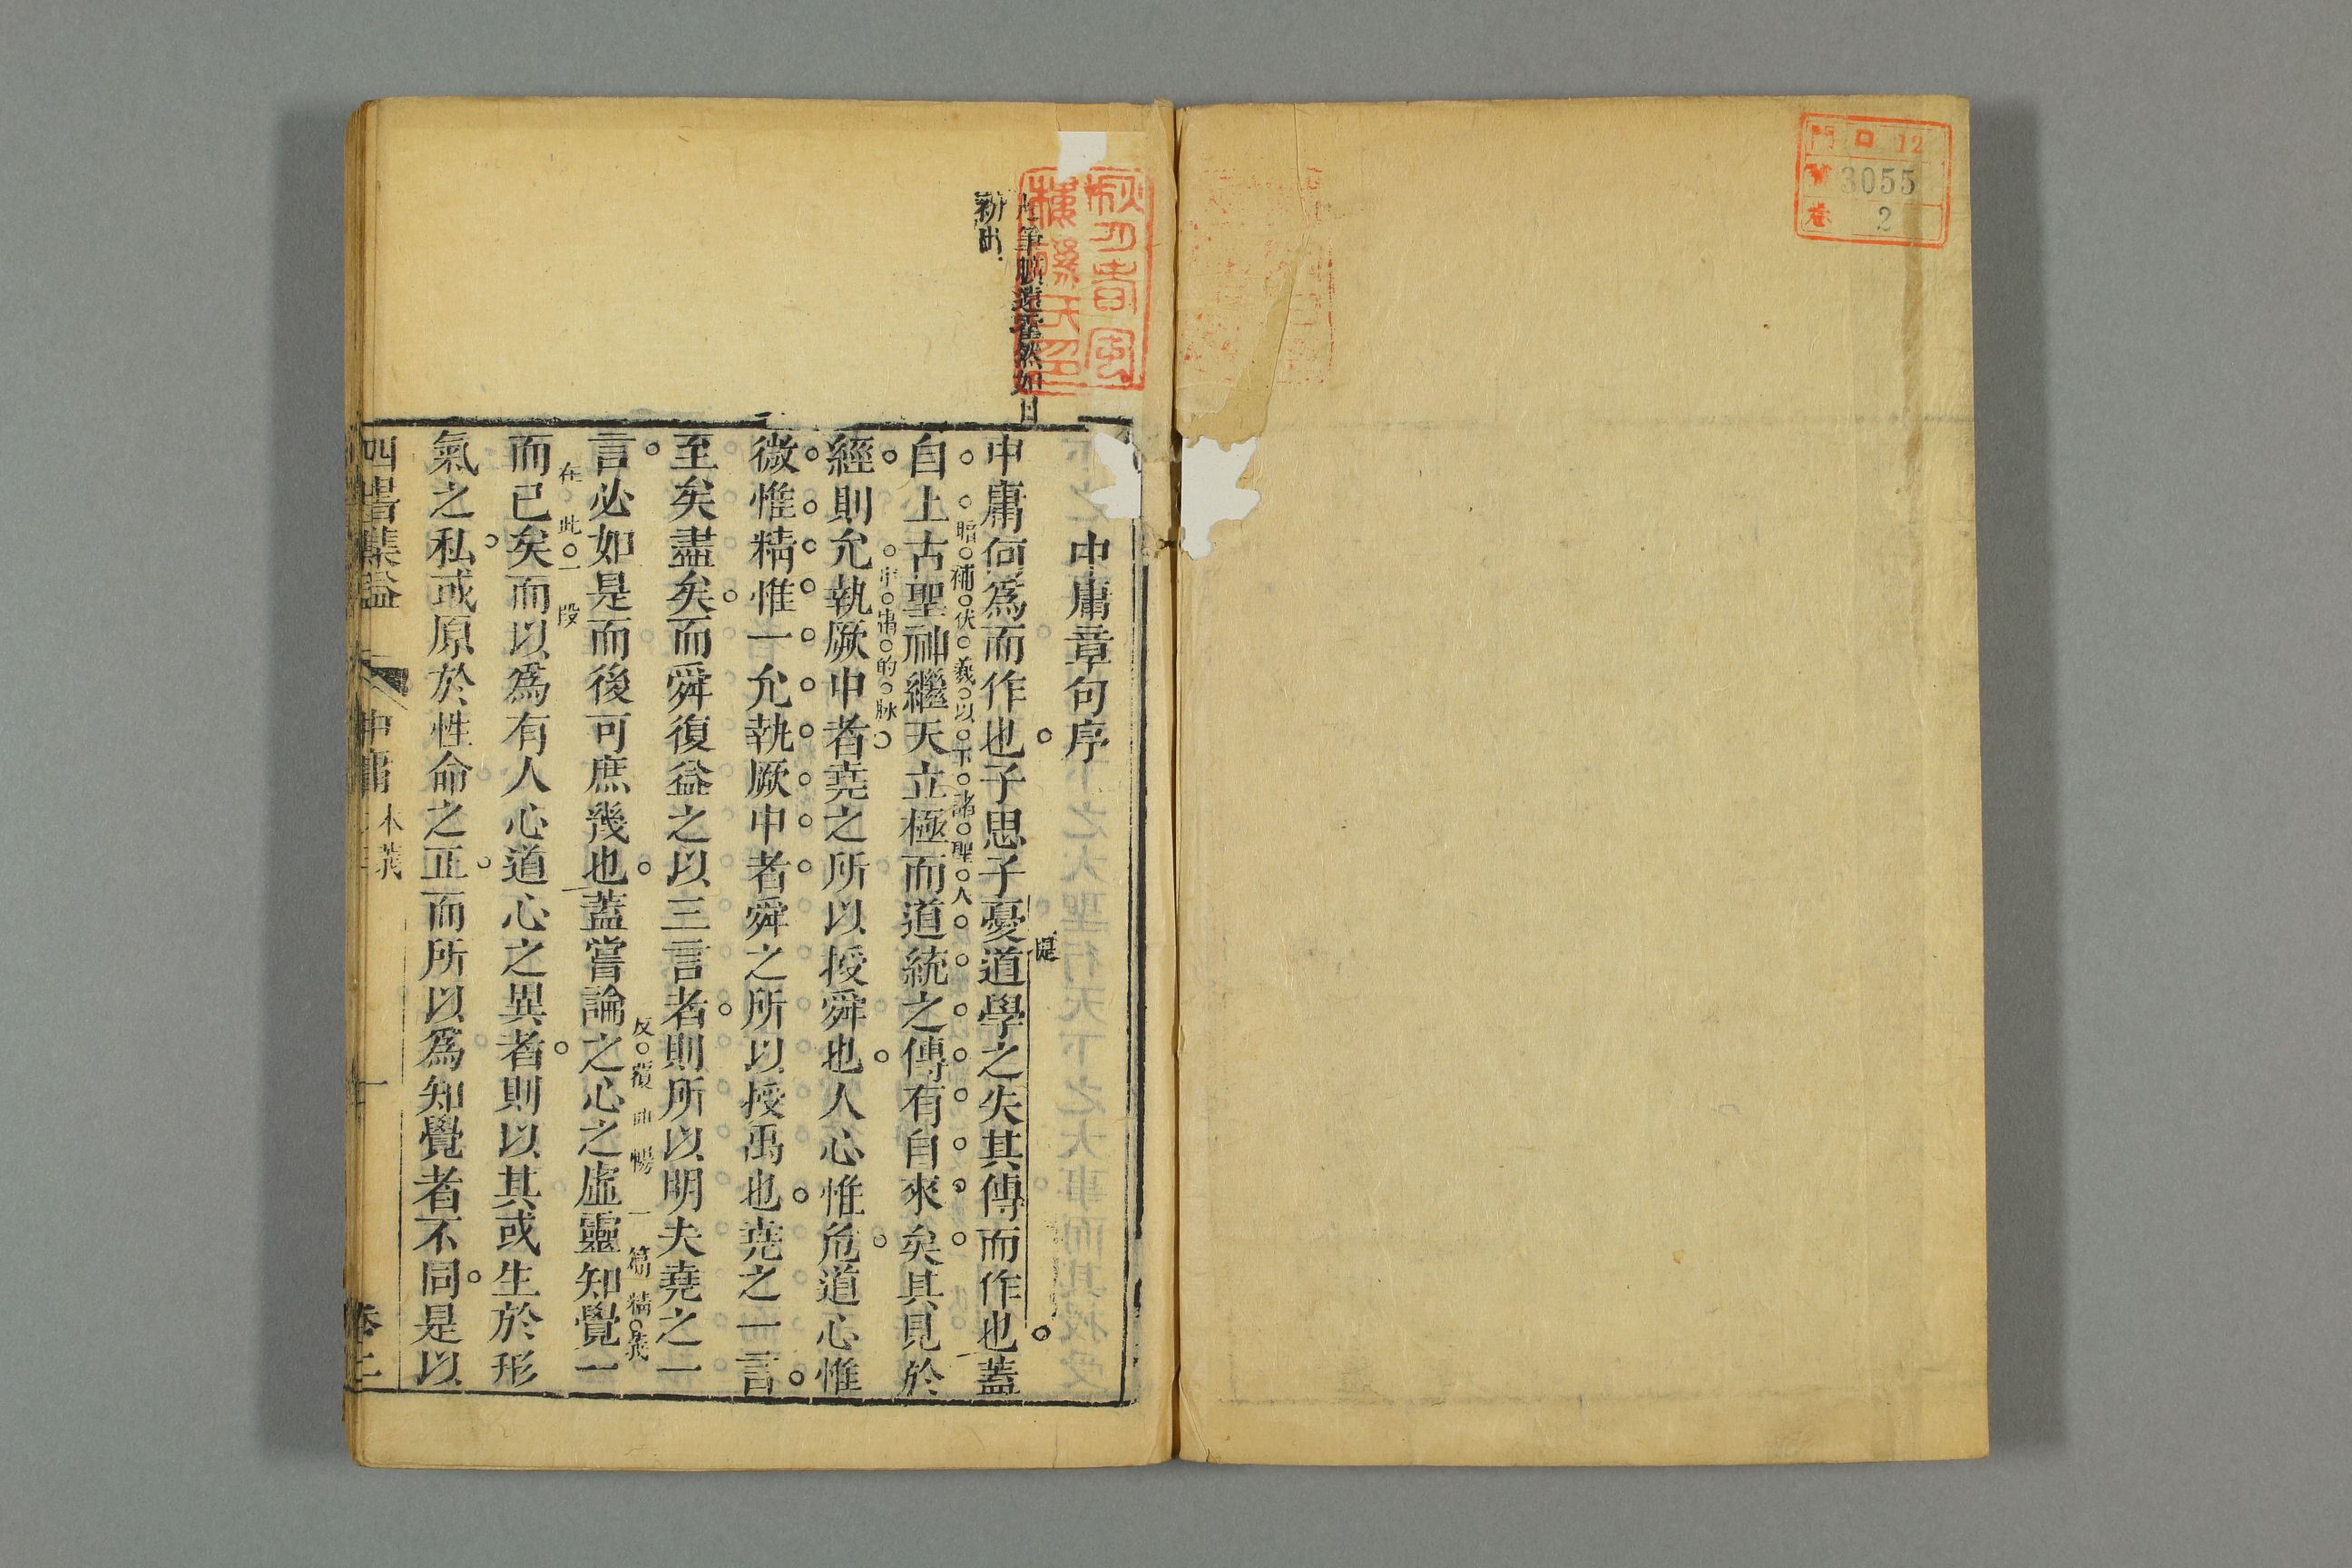 門 口 12
號 3055
卷 2
中庸章句序
中庸何爲而作也子思子憂道學之失其傳而作也蓋
提
自上古聖神繼天立極而道統之傳有自來矣其見於
暗補伏羲以下諸聖人
經則允執厥中者堯之所以授舜也人心惟危道心惟
中字的脉
微惟精惟一允執厥中者舜之所以授禹也堯之一言
至矣盡矣而舜復益之以三言者則所以明夫堯之一
言必如是而後可庶幾也蓋嘗論之心之虛靈知覺一
反覆 暢
一篇精義
而已矣而以爲有人心道心之異者則以其或生於形
在此一段
氣之私或原於性命之正而所以爲知覺者不同是以
四書集益 中庸 本義 一 卷二
筆 遒 然如日
初出